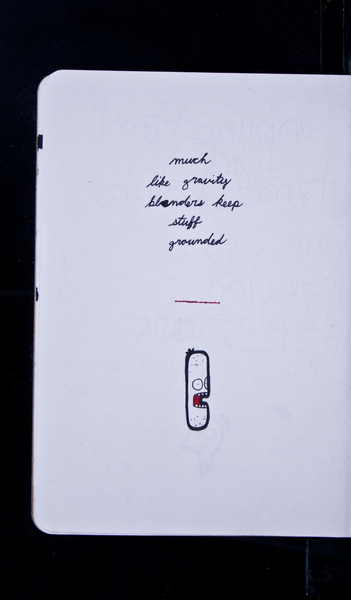 much
like gravity
blenders keep
stuff
grounded